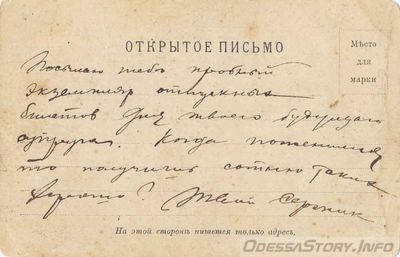 ОТКРЫТОЕ ПИСЬМО
Мѣсто
для
марки
Посылаю тебѣ пробный
экземпляр отпускных
билетов для твоего будущаго
супруга. Когда поженишся
то получишь сотню таких
Хорошо? Твой Сержик
На этой сторонѣ пишется только адресъ.
ODESSASTORY.INFO